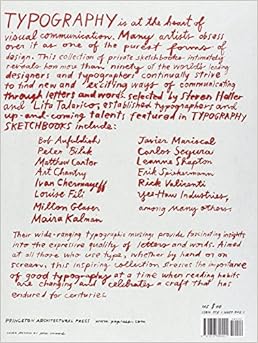 TYPOGRAPHY is at the heart of
visual communication. Many artists obsess
over it as one of the purest forms of
design. This collection of private sketchbooks intimately
reveals how more than ninety of the world's leading
designers and typographers continually strive
to find new and exciting ways of communicating
through letters and words. Selected by Steven Heller
and Lita Talarico, established typographers and
up-and-coming talents, featured in TYPOGRAPHY
SKETCHBOOKS include:
Bob Aufuldish
Peter Bilak
Matthew Carter
Art Chantry
Ivan Chermayeff
Louise Fili
Milton Glaser
Maira Kalman
Javier Mariscal
Carlos Segura
Leanne Shapton
Erik Spiekermann
Rick Valicenti
Yee-Haw Industries,
among many others.
Their wide-ranging typographic musings provide fascinating insights
into the expressive quality of letters and words. Aimed
at all those who use type, whether by hand or on
screen, this inspiring collection stresses the importance
of good typography at a time when reading habits
are changing and celebrates a craft that has
endured for centuries.
PRINCETON ARCHITECTURAL PRESS www.papress.com